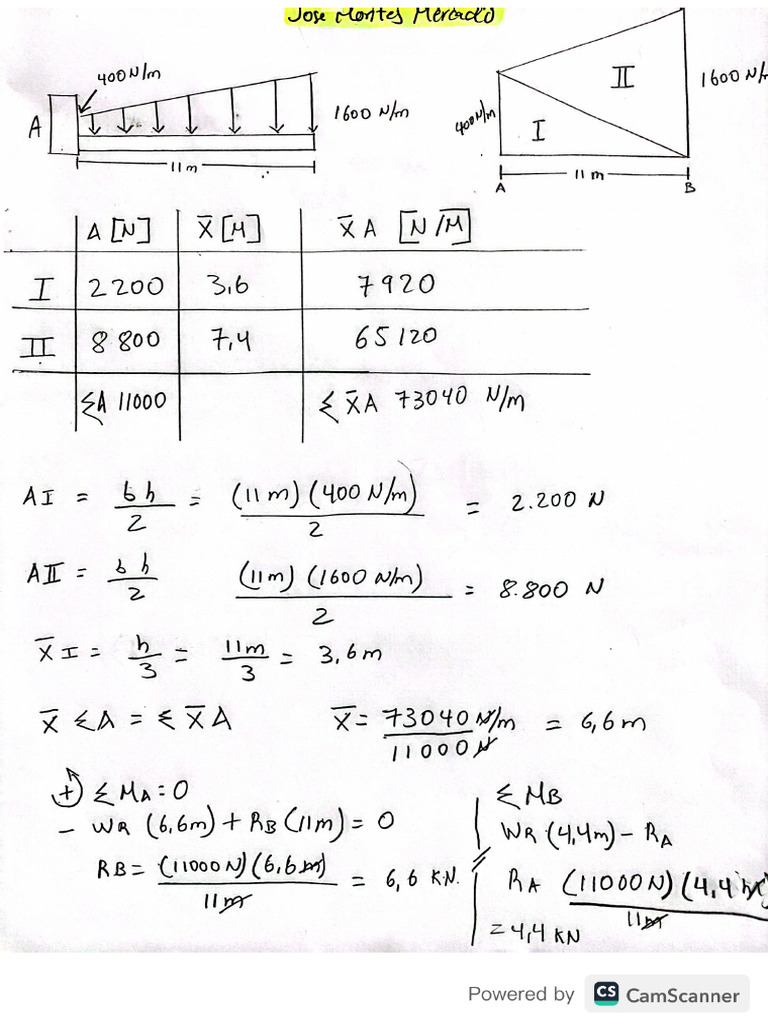 Jose Montes Mercado
400 N/m
A
1600 N/m
11 m
400 N/m
I
II
1600 N/
11 m
A B
A [N] X̄ [M] X̄ A [N/M]
I 2200 3,6 7920
II 8800 7,4 65120
ΣA 11000 Σ X̄A 73040 N/m
AI = bh/2 = (11m)(400 N/m)/2 = 2.200 N
AII = bh/2 (11m)(1600 N/m)/2 = 8.800 N
X̄ I = h/3 = 11m/3 = 3,6m
X̄ ΣA = Σ X̄A X̄ = 73040 N/m/11000 N = 6,6m
+ Σ MA = 0
- WR (6,6m) + RB (11m) = 0
RB = (11000N)(6,6m)/11m = 6,6 KN.
Σ MB
WR (4,4m) - RA
RA (11000N)(4,4m)/11m
= 4,4 KN
Powered by CS CamScanner